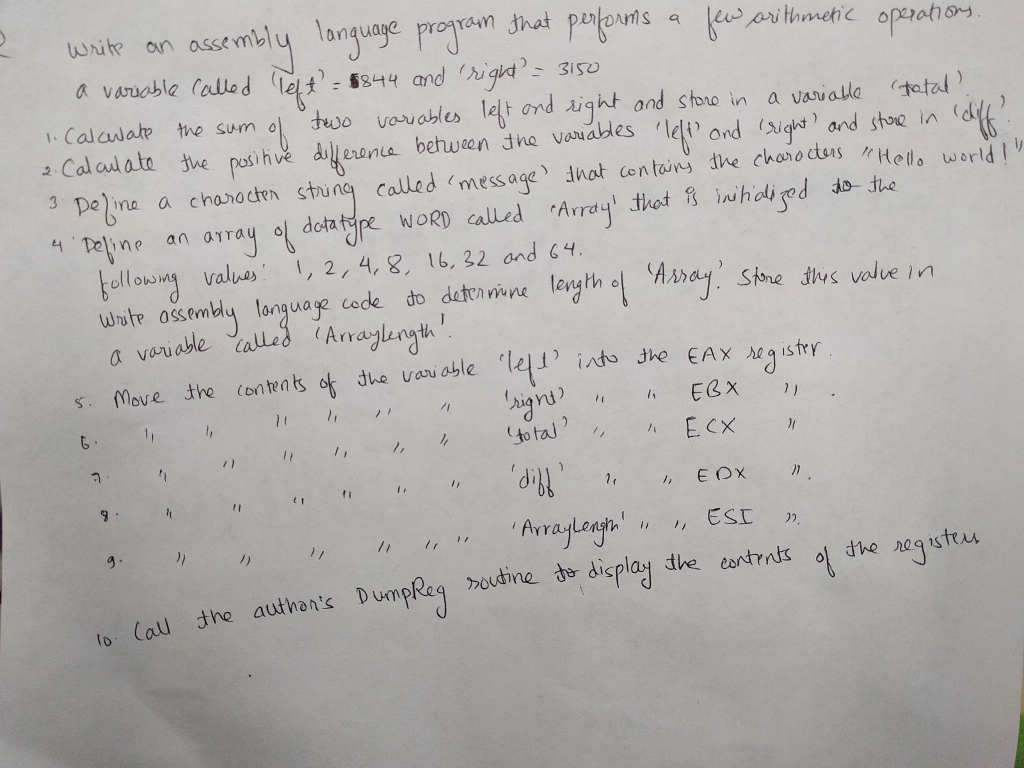 Write an assembly language program that performs a few arithmetic operations.
a variable called 'left' = 5844 and 'right' = 3150
1. Calculate the sum of two variables left and right and store in a variable 'total'
2. Calculate the positive difference between the variables 'left' and 'right' and store in 'diff'
3 Define a character string called 'message' that contains the characters "Hello world!"
4 Define an array of datatype WORD called 'Array' that is initialized to the
following values: 1, 2, 4, 8, 16, 32 and 64.
Write assembly language code to determine length of 'Array'. Store this value in
a variable called 'ArrayLength'.
5. Move the contents of the variable 'left' into the EAX register.
6. " " " " " " 'right' " " EBX " .
7. " " " " " " 'total' " " ECX "
8. " " " " " " 'diff' " " EDX ".
9. " " " " " " 'ArrayLength' " " ESI ".
10. Call the author's DumpReg routine to display the contents of the registers